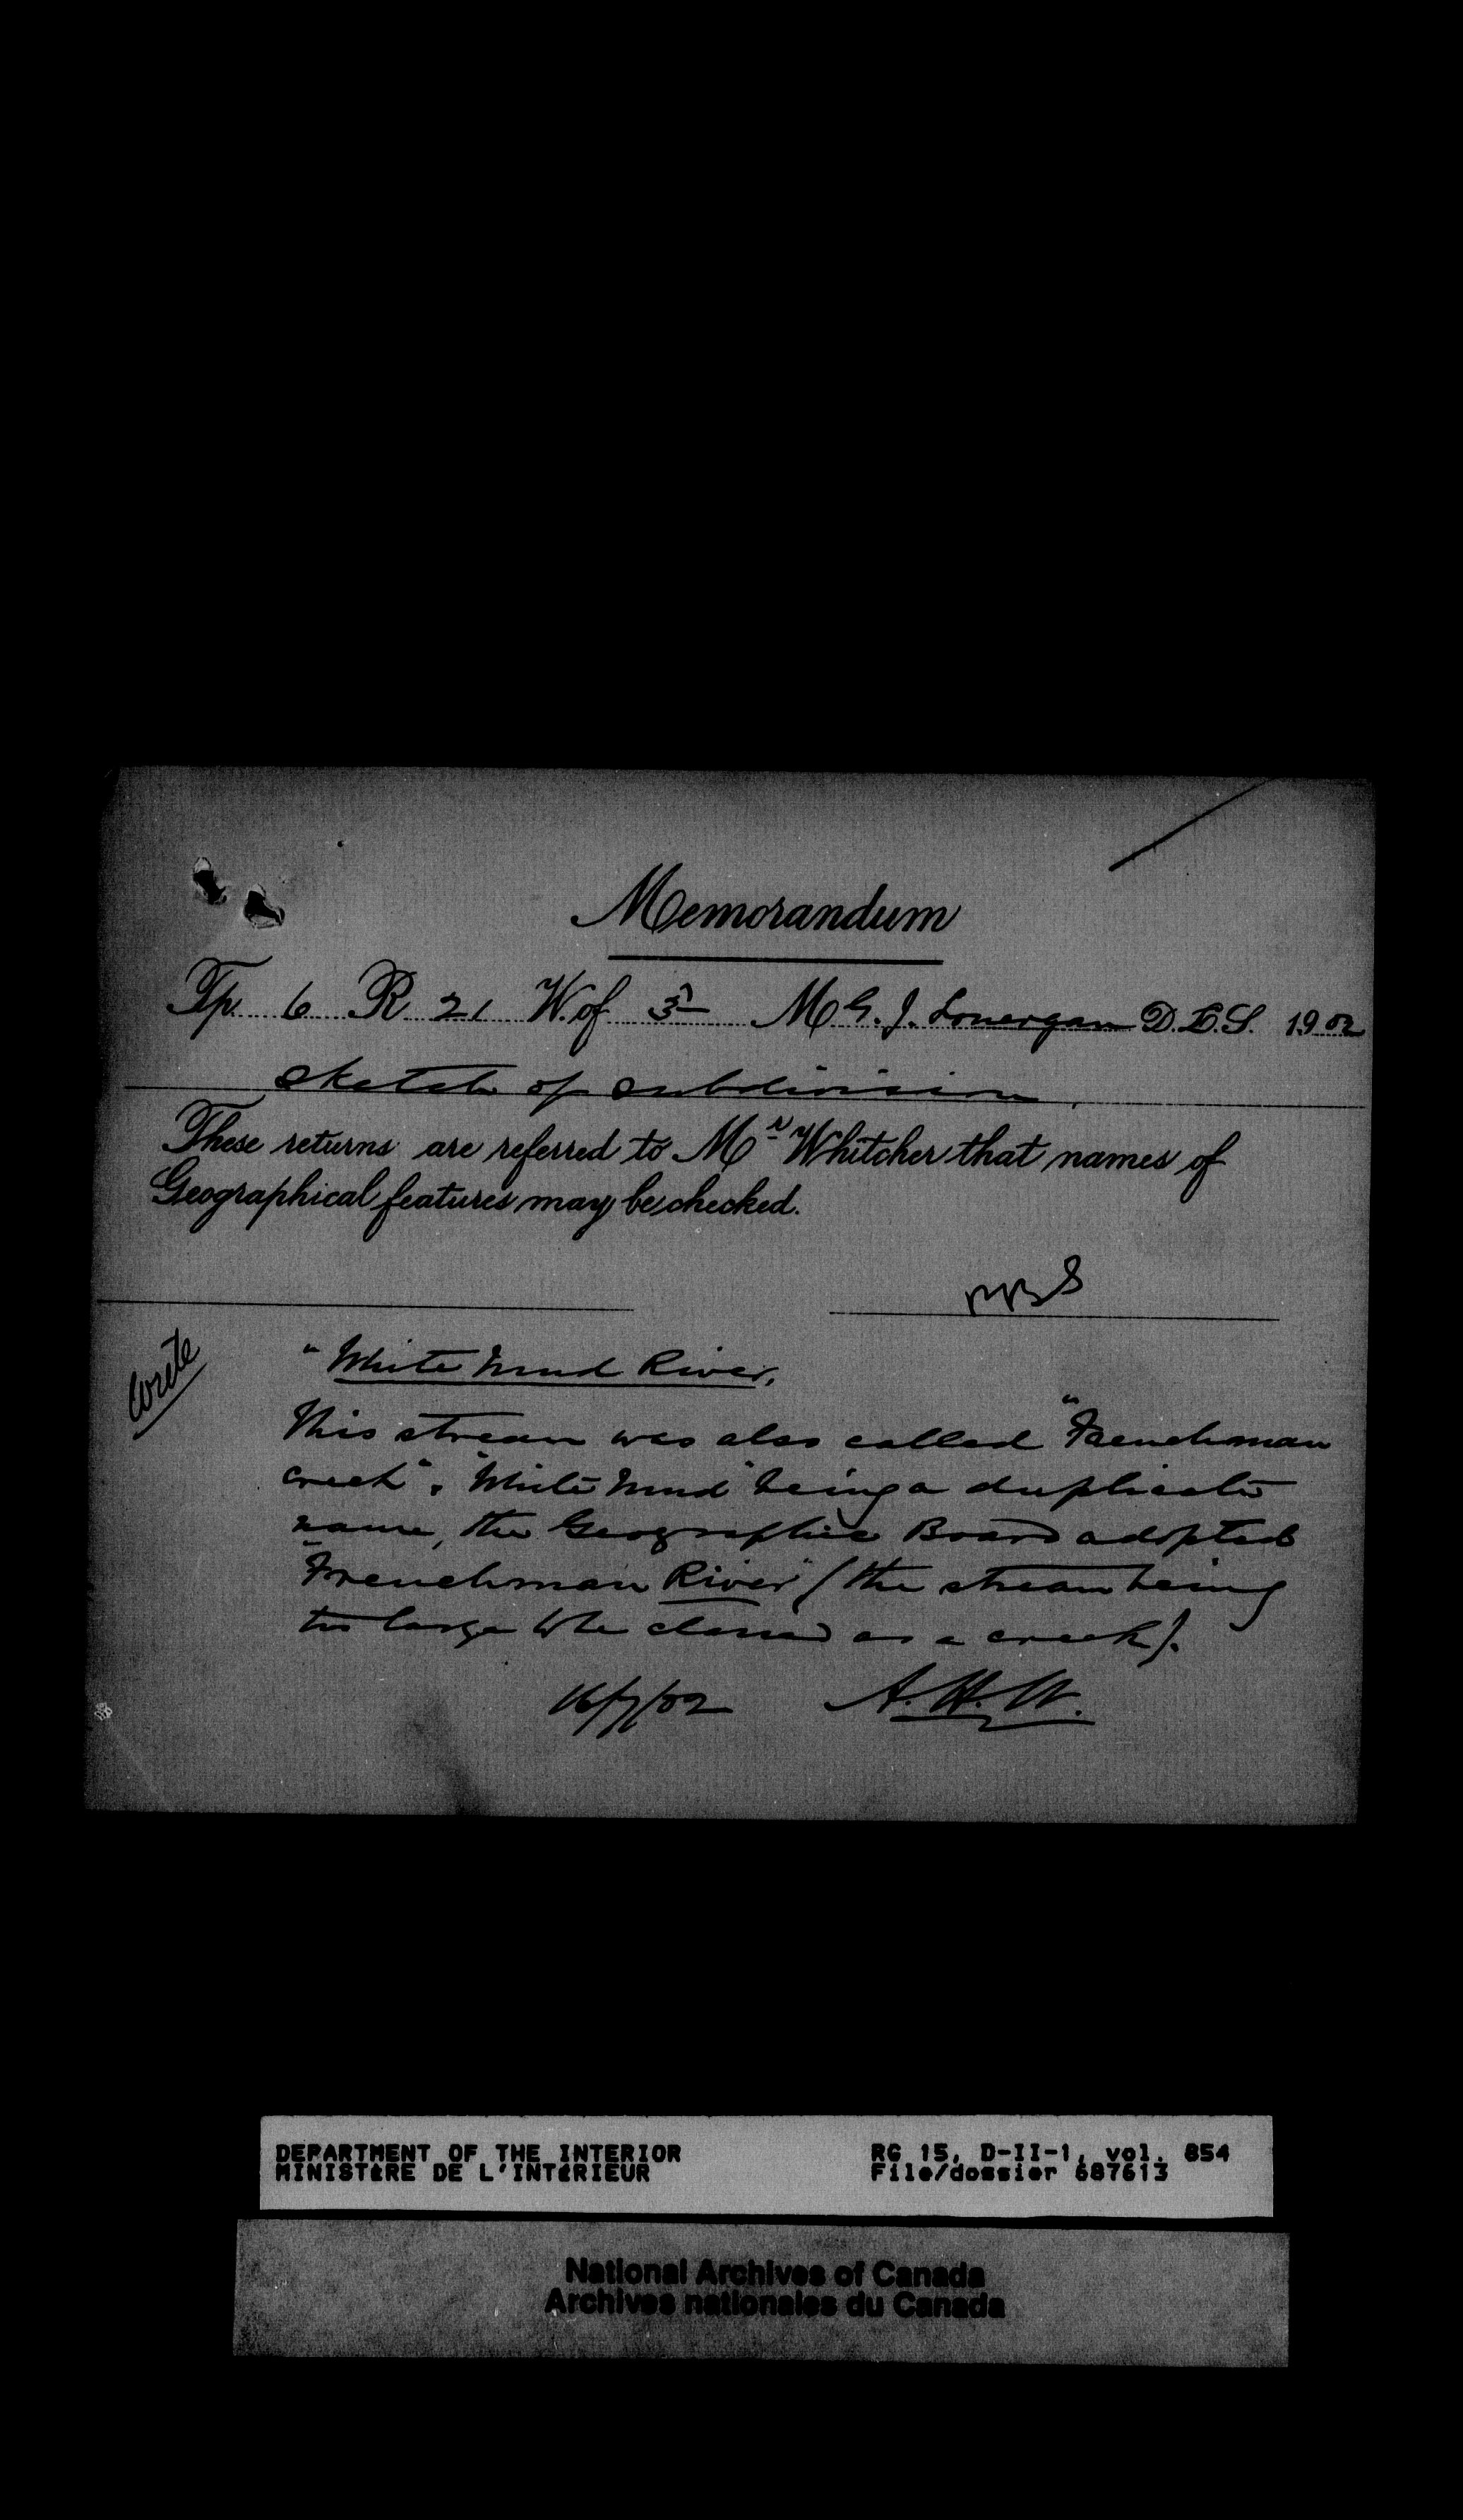 Memorandum
Tp. 6 R 21 W. of 3 M G. J. Lonergan D.L.S. 1902
Sketch of subdivision.
These returns are referred to Mr Whitcher that names of
Geographical features may be checked.
Write
"White Mud River,
This stream was also called "Frenchman
creek". "White Mud" being a duplicate
name, the Geographic Board adopted
"Frenchman River" (the stream being
too large to be classed as a creek).
16/7/02 A.H.W.
DEPARTMENT OF THE INTERIOR RG 15, D-II-1, vol. 854
MINISTÈRE DE L'INTÉRIEUR File/dossier 687613
National Archives of Canada
Archives nationales du Canada